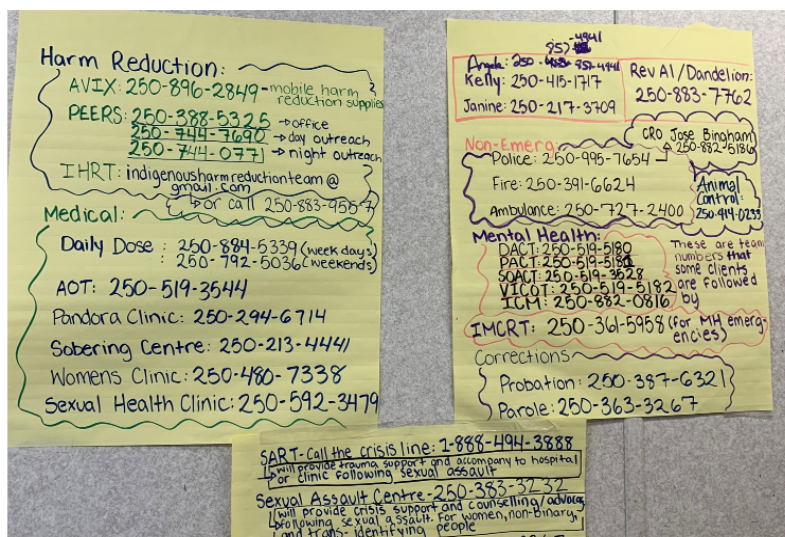 Harm Reduction:
AVIX: 250-896-2849 - mobile harm
reduction supplies
PEERS: 250-388-5325 → office
250-744-7690 → day outreach
250-744-0771 → night outreach
IHRT: indigenousharmreductionteam@
gmail.com
↳ or call 250-883-955-7
Medical:
Daily Dose : 250-884-5339 (week days)
: 250-792-5036 (weekends)
AOT: 250-519-3544
Pandora Clinic: 250-294-6714
Sobering Centre: 250-213-4441
Womens Clinic: 250-480-7338
Sexual Health Clinic: 250-592-3479
857-4941
Angela: 250- 857-4941
Kelly: 250-415-1717
Janine: 250-217-3709
Rev Al / Dandelion:
250-883-7762
CRO Jose Bingham
250-882-5186
Non-Emerg
Police: 250-995-7654
Fire: 250-391-6624
Ambulance: 250-727-2400
Animal
Control:
250-414-0233
Mental Health:
DACT: 250-519-5180
PACT: 250-519-5181
SOACT: 250-519-3528
VICOT: 250-519-5182
ICM: 250-882-0816
These are team
numbers that
some clients
are followed
by
IMCRT: 250-361-5958 (for MH emerg-
encies)
Corrections
Probation: 250-387-6321
Parole: 250-363-3267
SART - Call the crisis line: 1-888-494-3888
↳ will provide trauma support and accompany to hospital
or clinic following sexual assault
Sexual Assault Centre - 250-383-3232
↳ will provide crisis support and counselling/advocacy
following sexual assault. For women, non-binary,
and trans-identifying people